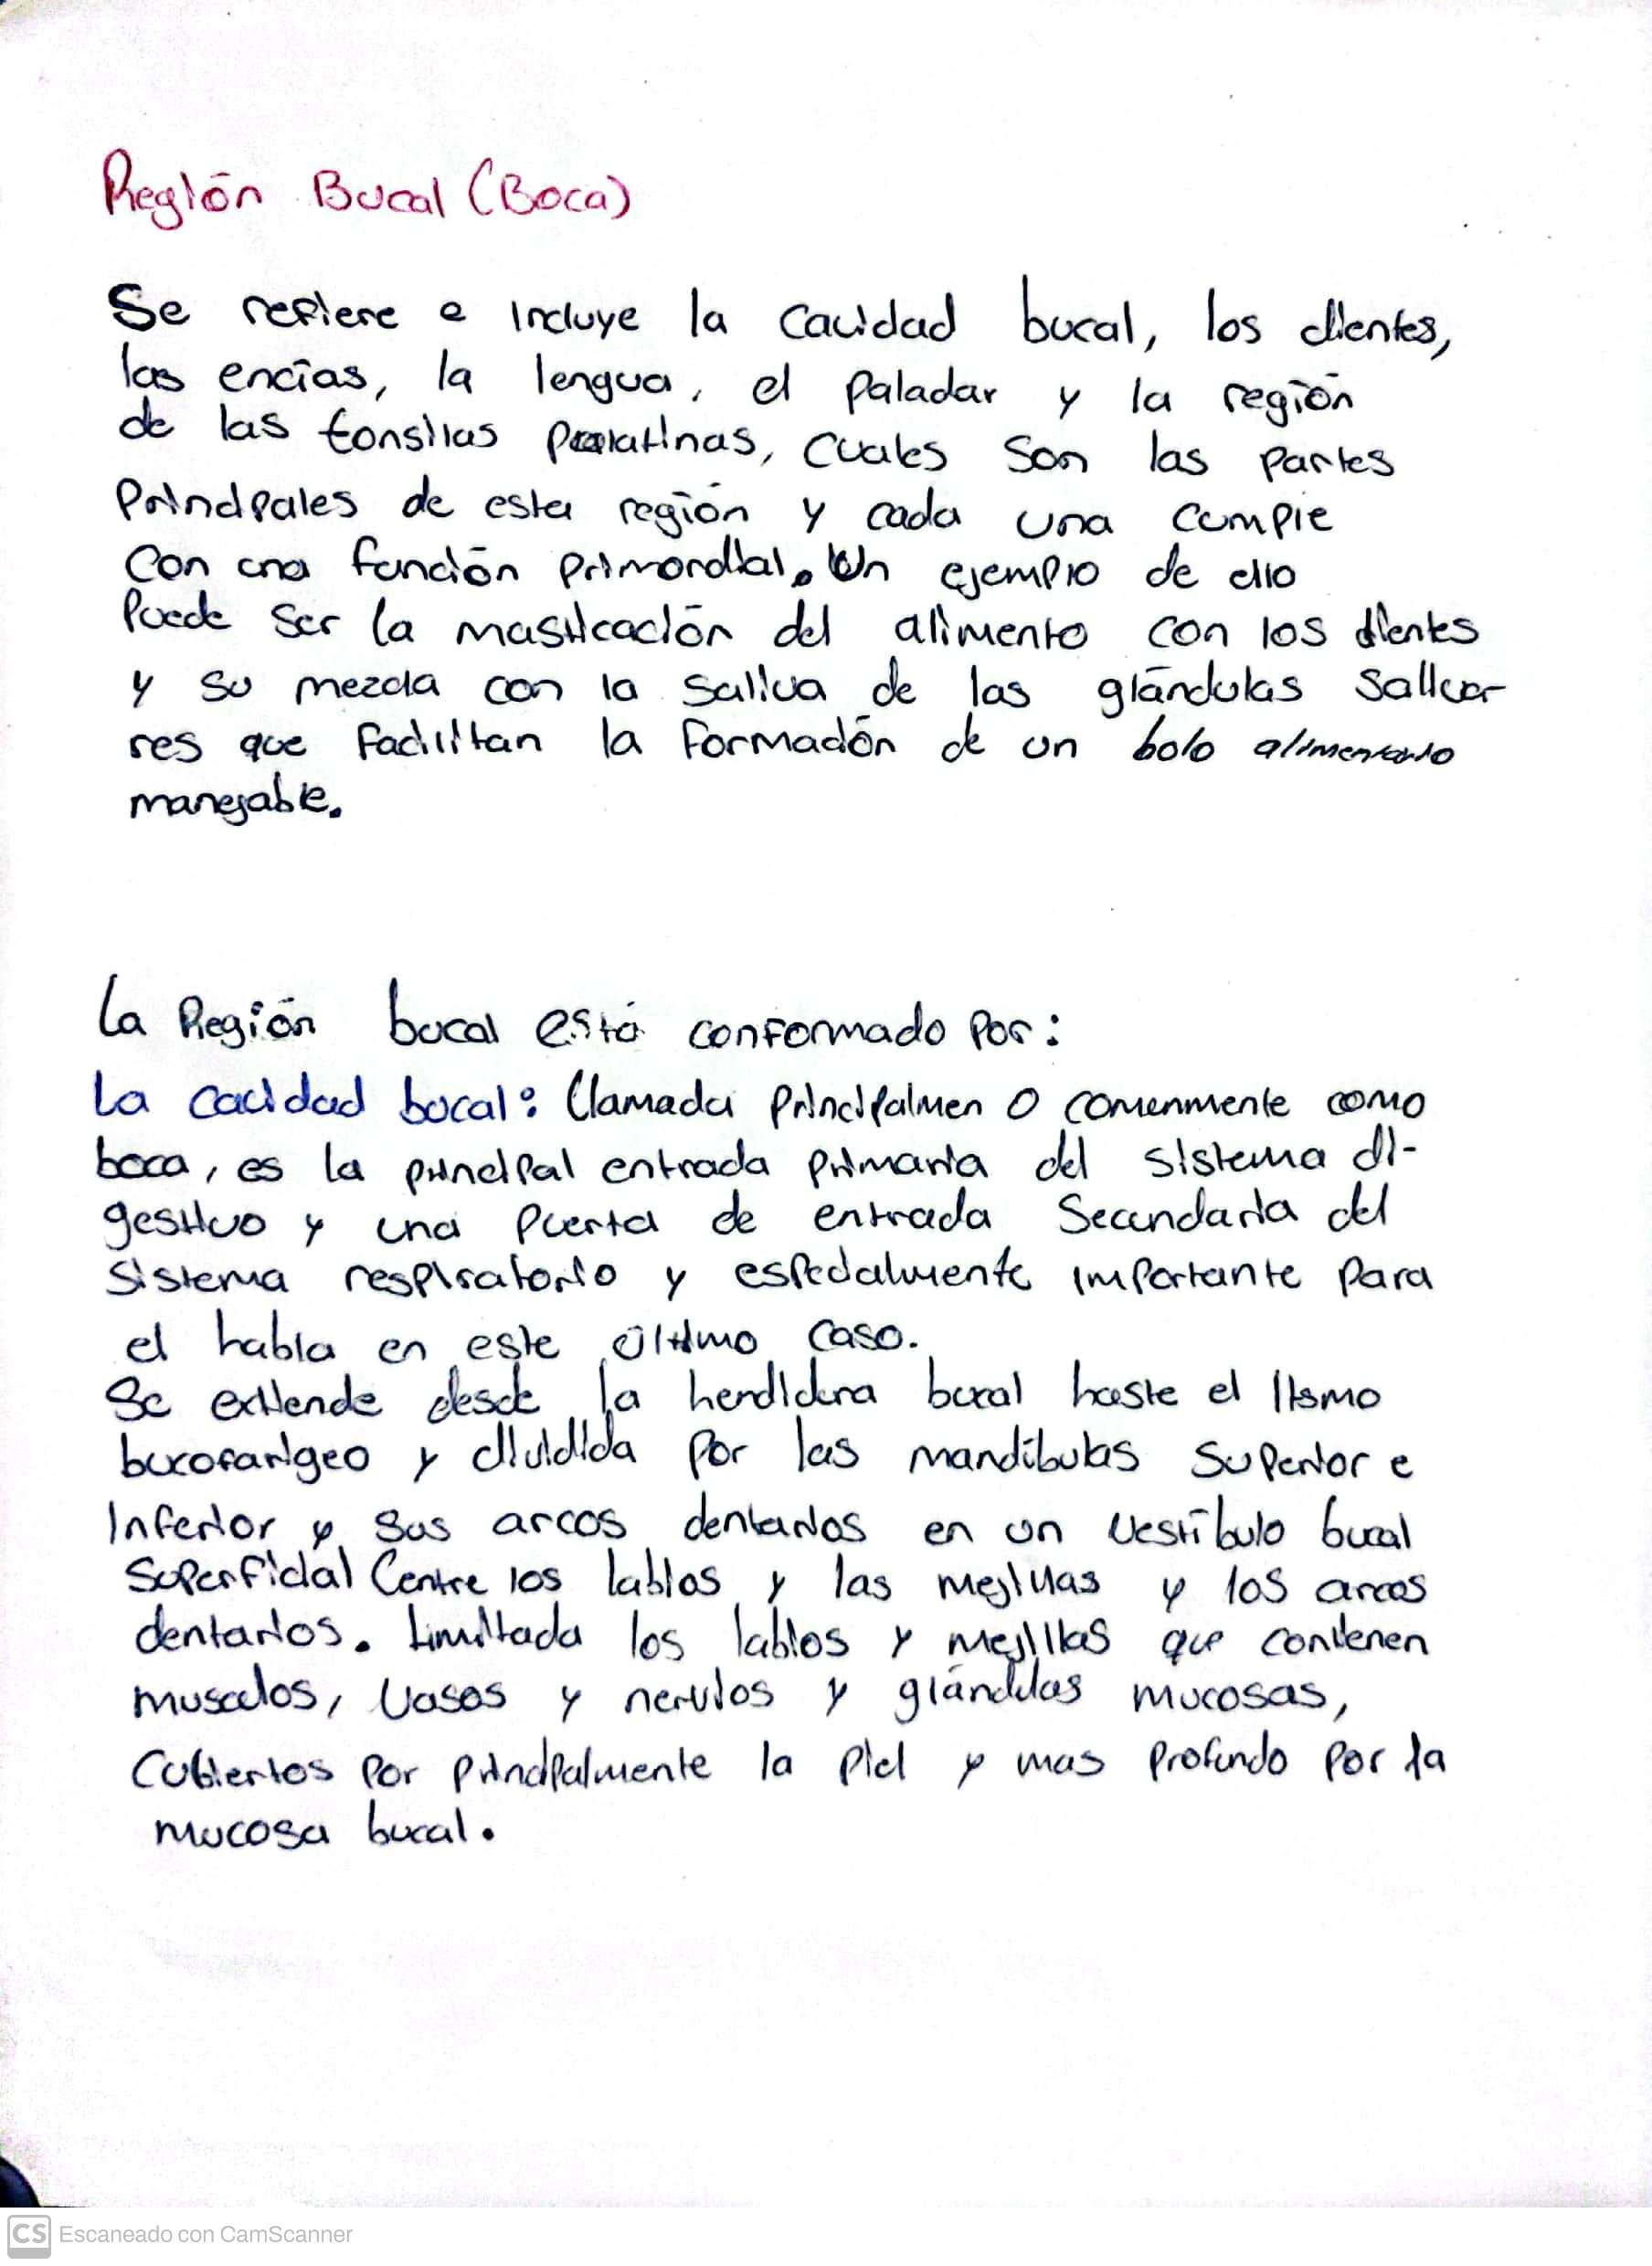 Región Bucal (Boca)
Se refiere e incluye la cavidad bucal, los dientes,
las encías, la lengua, el paladar y la región
de las tonsilas palatinas, cuales son las partes
Principales de esta región y cada una cumple
con una función primordial. Un ejemplo de ello
Puede ser la masticación del alimento con los dientes
y su mezcla con la saliva de las glándulas saliva-
res que facilitan la formación de un bolo alimentario
manejable.
La Región bucal está conformado por:
La cavidad bucal: llamada principalmen o comunmente como
boca, es la principal entrada primaria del sistema di-
gestivo y una puerta de entrada secundaria del
sistema respiratorio y especialmente importante para
el habla en este último caso.
Se extiende desde la hendidura bucal haste el Itsmo
bucofarigeo y dividida por las mandíbulas superior e
Inferior y sus arcos dentarios en un vestíbulo bucal
superficial (entre los labios y las mejillas y los arcos
dentarios. Limitada los labios y mejillas que contienen
musculos, vasos y nervios y glándulas mucosas,
cubiertos por principalmente la piel y mas profundo por la
mucosa bucal.
CS Escaneado con CamScanner